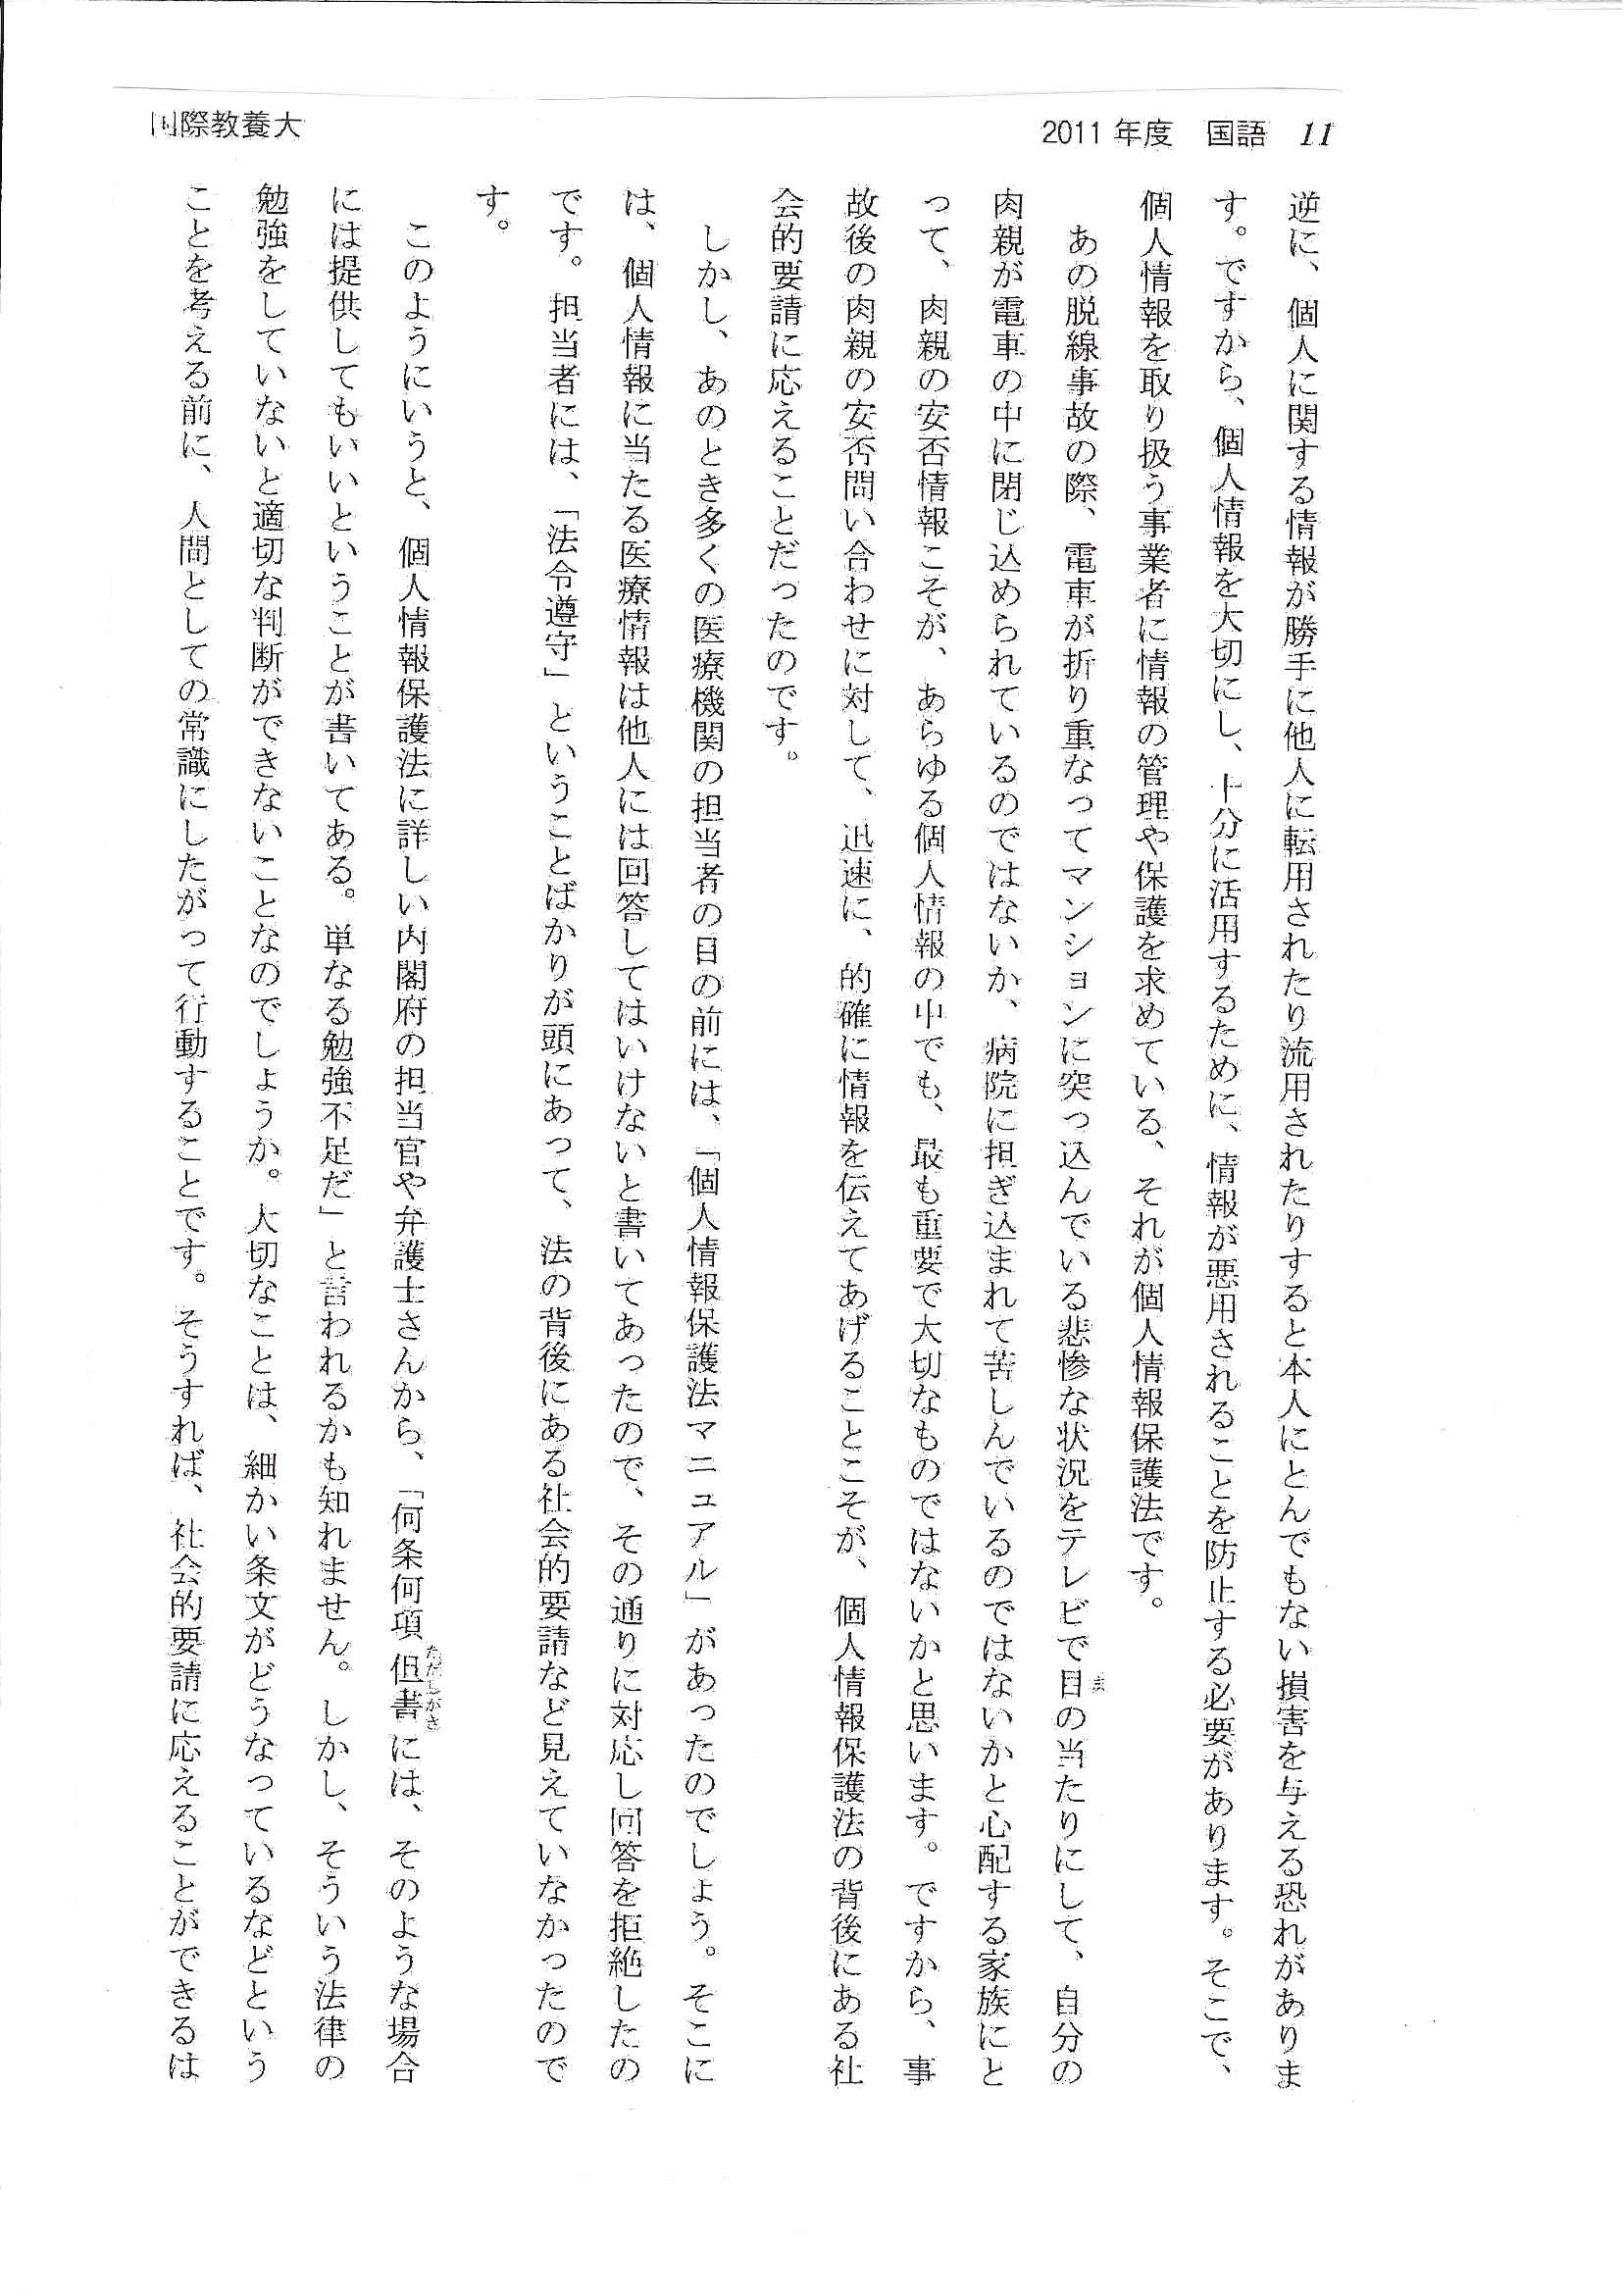 国際教養大
2011年度 国語 11
逆に、個人に関する情報が勝手に他人に転用されたり流用されたりすると本人にとんでもない損害を与える恐れがありま
す。ですから、個人情報を大切にし、十分に活用するために、情報が悪用されることを防止する必要があります。そこで、
個人情報を取り扱う事業者に情報の管理や保護を求めている、それが個人情報保護法です。
あの脱線事故の際、電車が折り重なってマンションに突っ込んでいる悲惨な状況をテレビで目の当たりにして、自分の
肉親が電車の中に閉じ込められているのではないか、病院に担ぎ込まれて苦しんでいるのではないかと心配する家族にと
って、肉親の安否情報こそが、あらゆる個人情報の中でも、最も重要で大切なものではないかと思います。ですから、事
故後の肉親の安否問い合わせに対して、迅速に、的確に情報を伝えてあげることこそが、個人情報保護法の背後にある社
会的要請に応えることだったのです。
しかし、あのとき多くの医療機関の担当者の目の前には、「個人情報保護法マニュアル」があったのでしょう。そこに
は、個人情報に当たる医療情報は他人には回答してはいけないと書いてあったので、その通りに対応し回答を拒絶したの
です。担当者には、「法令遵守」ということばかりが頭にあって、法の背後にある社会的要請など見えていなかったので
す。
このようにいうと、個人情報保護法に詳しい内閣府の担当官や弁護士さんから、「何条何項但書には、そのような場合
には提供してもいいということが書いてある。単なる勉強不足だ」と言われるかも知れません。しかし、そういう法律の
勉強をしていないと適切な判断ができないことなのでしょうか。大切なことは、細かい条文がどうなっているなどという
ことを考える前に、人間としての常識にしたがって行動することです。そうすれば、社会的要請に応えることができるは